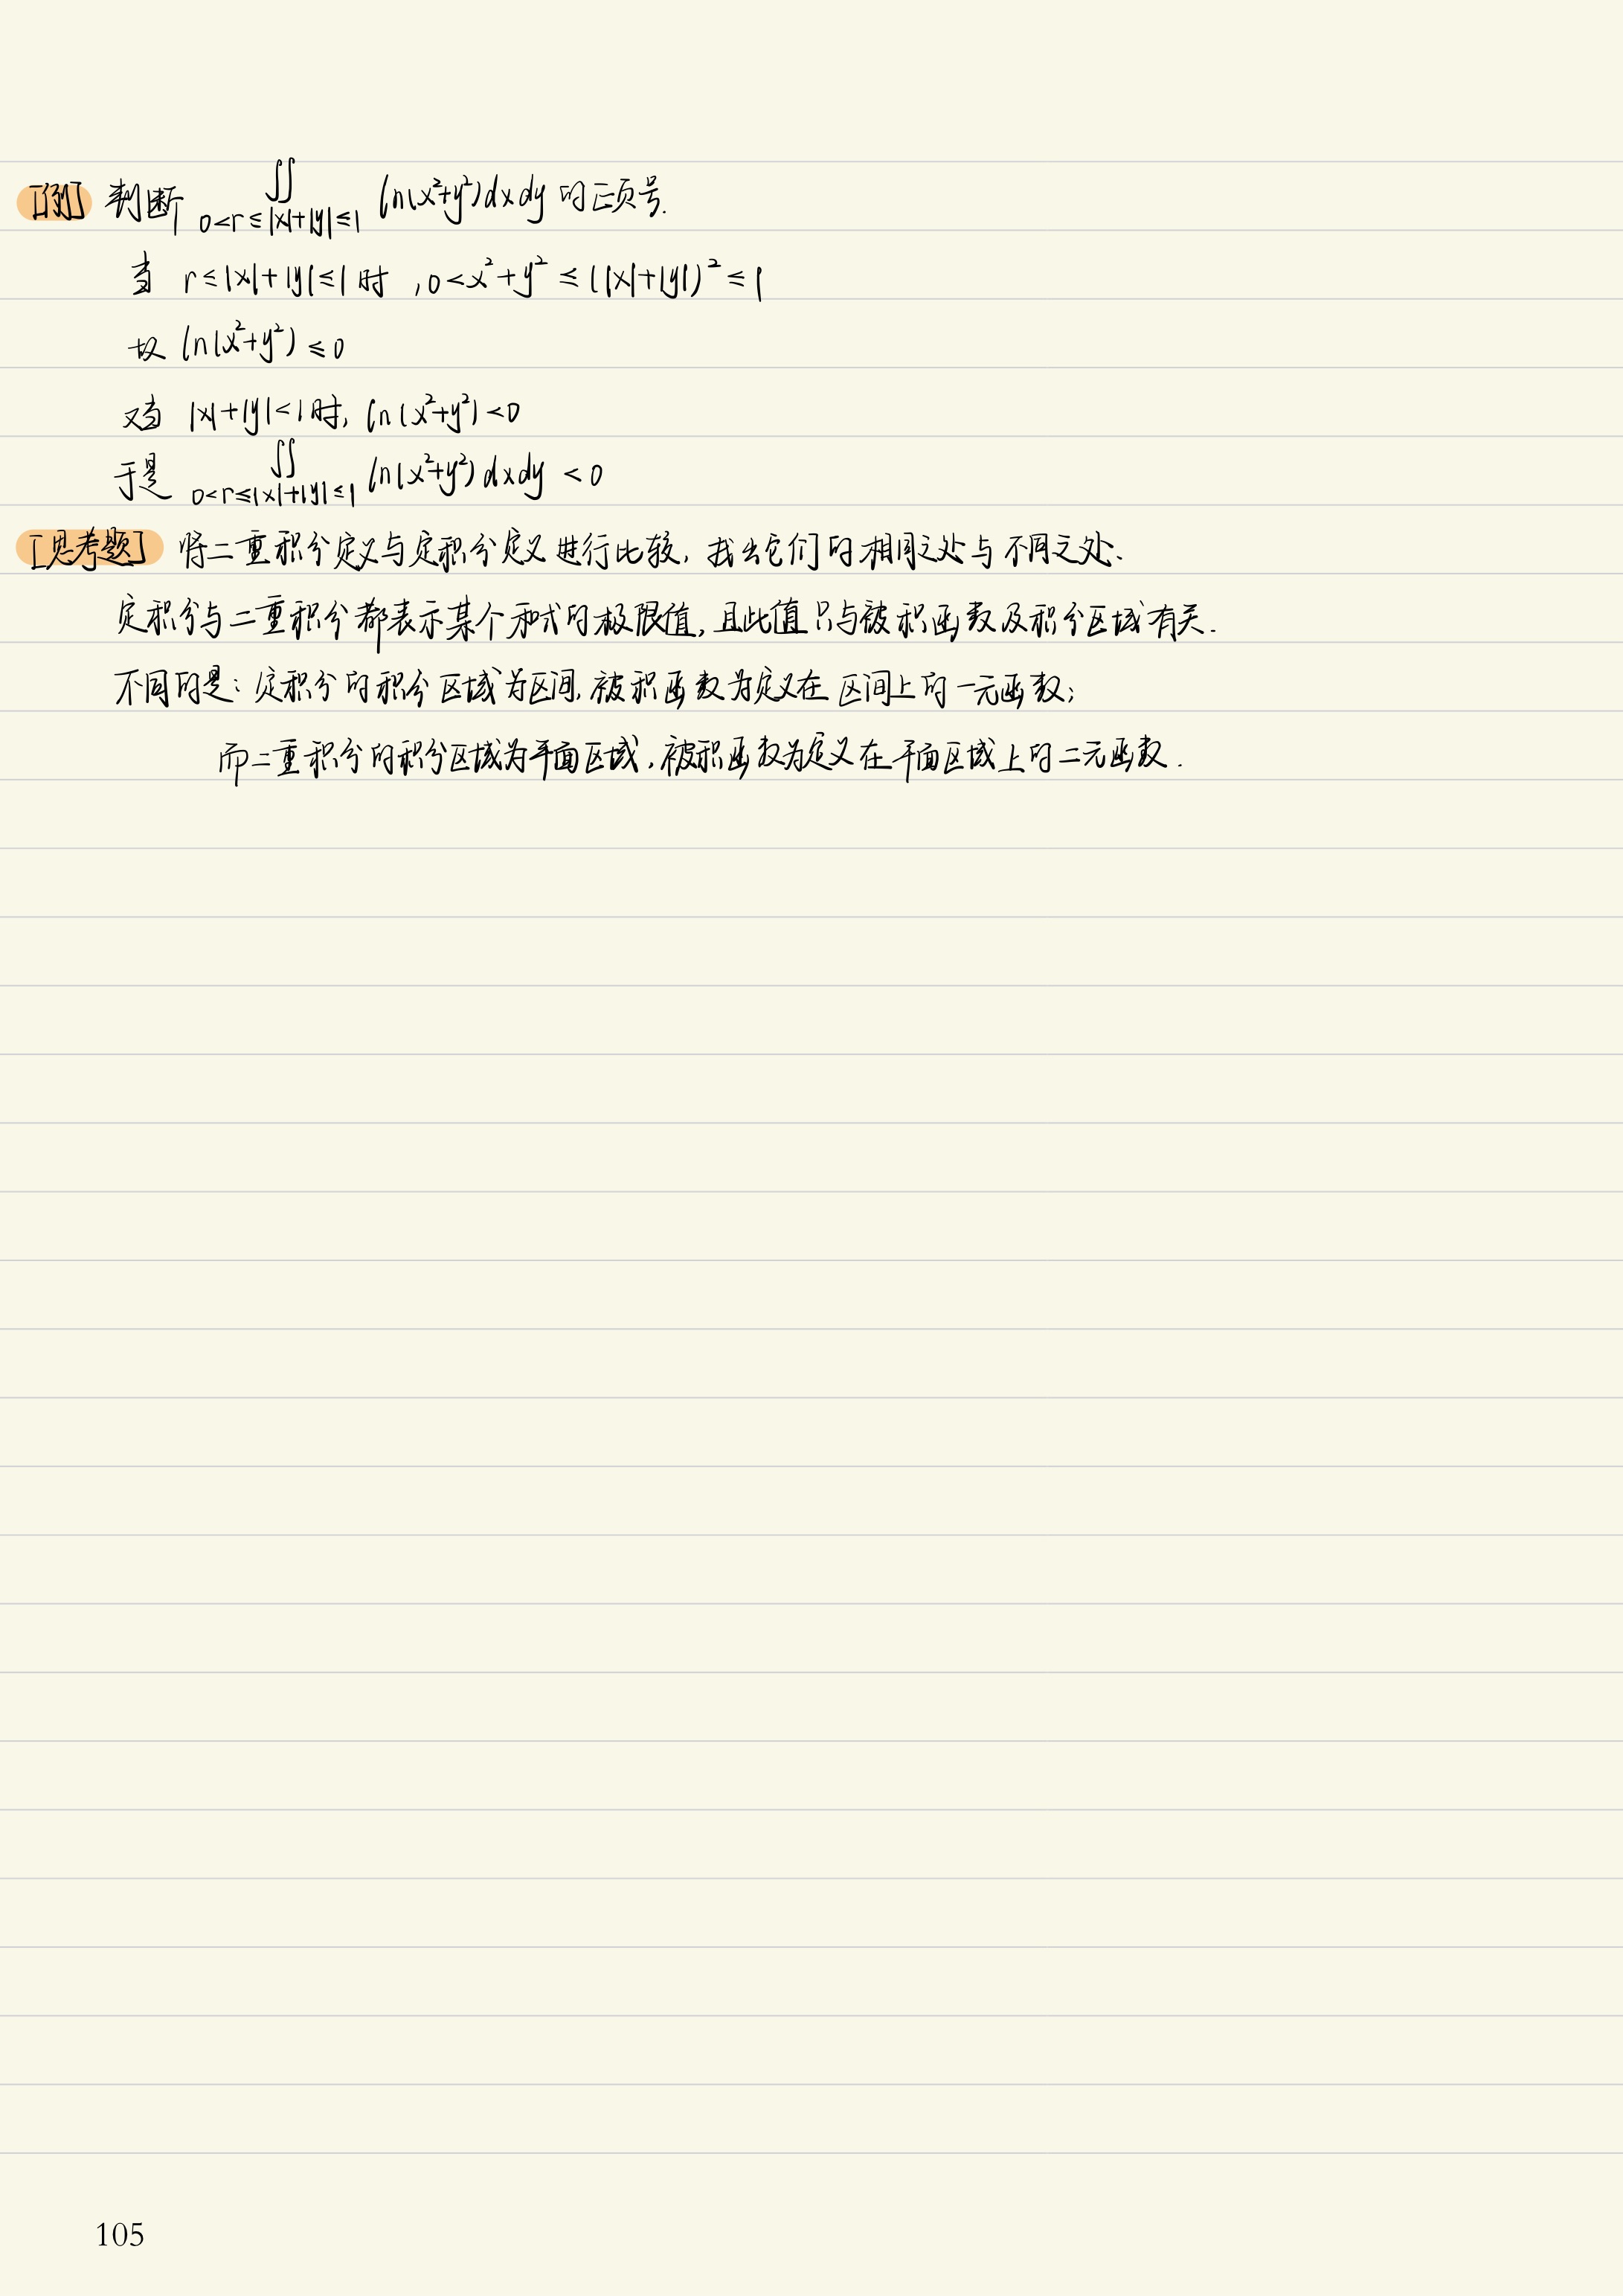 [例] 判断 ∬_{0<r≤|x|+|y|≤1} ln(x²+y²)dxdy 的正负号.
当 r≤|x|+|y|≤1时, 0<x²+y²≤(|x|+|y|)²≤1
故 ln(x²+y²)≤0
又当 |x|+|y|<1时, ln(x²+y²)<0
于是 ∬_{0<r≤|x|+|y|≤1} ln(x²+y²)dxdy<0
[思考题] 将二重积分定义与定积分定义进行比较, 找出它们的相同之处与不同之处.
定积分与二重积分都表示某个和式的极限值, 且此值只与被积函数及积分区域有关.
不同的是: 定积分的积分区域为区间, 被积函数为定义在区间上的一元函数;
而二重积分的积分区域为平面区域, 被积函数为定义在平面区域上的二元函数.
105